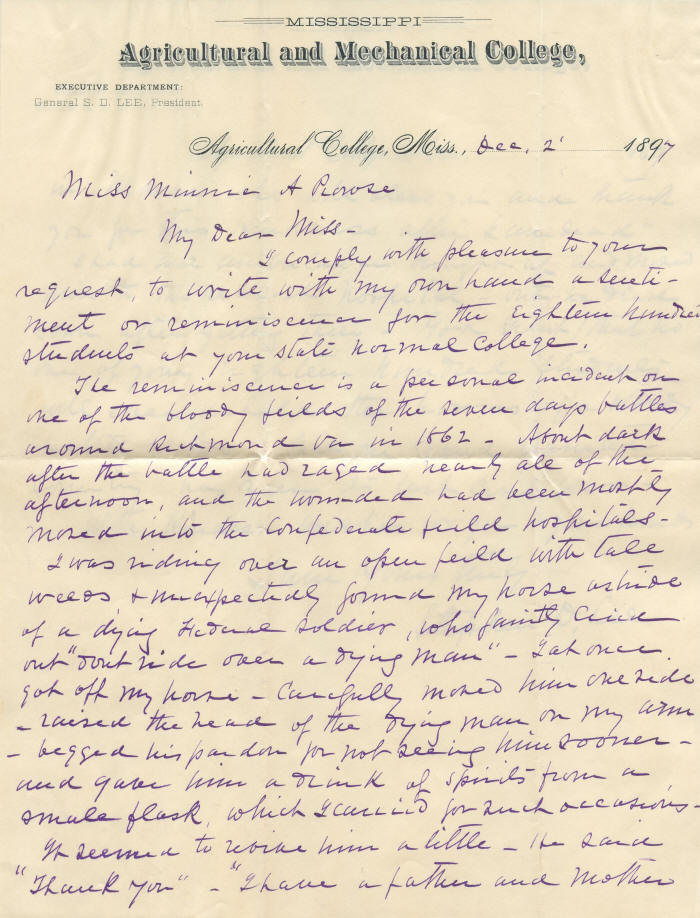 MISSISSIPPI
Agricultural and Mechanical College,
EXECUTIVE DEPARTMENT:
General S. D. LEE, President.
Agricultural College, Miss., Dec. 2' 1897
Miss Minnie A
My Dear Miss-
I comply with pleasure to your
request, to write with my own hand a senti-
ment or reminiscence for the Eighteen hundred
students at your state Normal College.
The reminiscence is a personal incident on
one of the bloody feilds of the seven days battles
around Richmond Va in 1862 - About dark
after the battle had raged nearly all of the
afternoon, and the wounded had been mostly
moved into the Confederate feild hospitals-
I was riding over an open feild with tall
weeds & unexpectedly found my horse astride
of a dying Federal soldier, who faintly cried
out "dont ride over a dying man" - I at once
got off my horse - Carefully moved him one side
- raised the head of the dying man on my arm
- begged his pardon for not seeing him sooner -
and gave him a drink of spirits from a
small flask, which I carried for such occasions-
It seemed to revive him a little - He said
"Thank you" - "I have a father and Mother